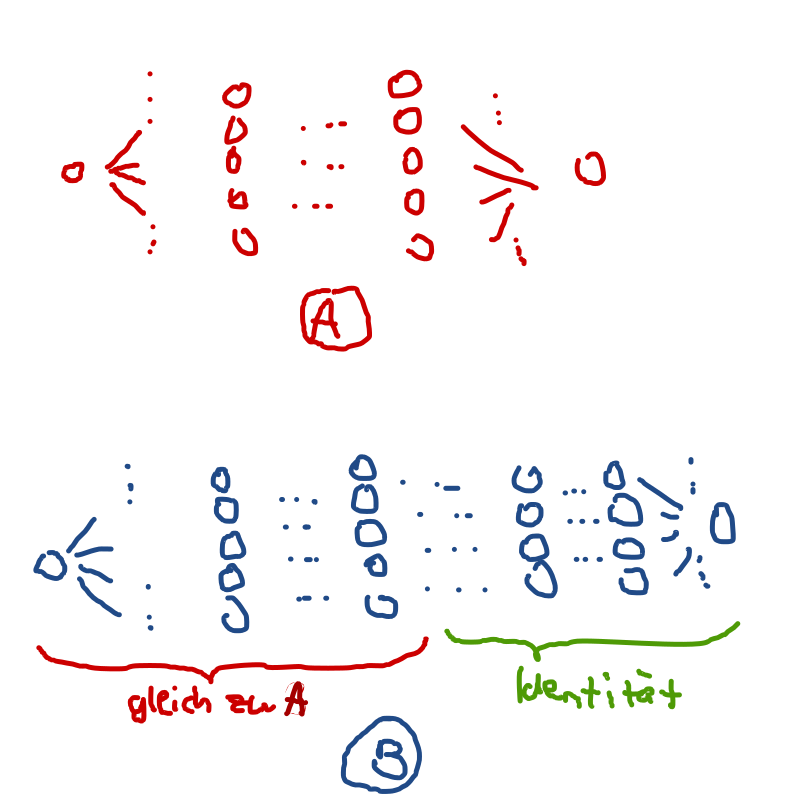 A
gleich zu A
Identität
B